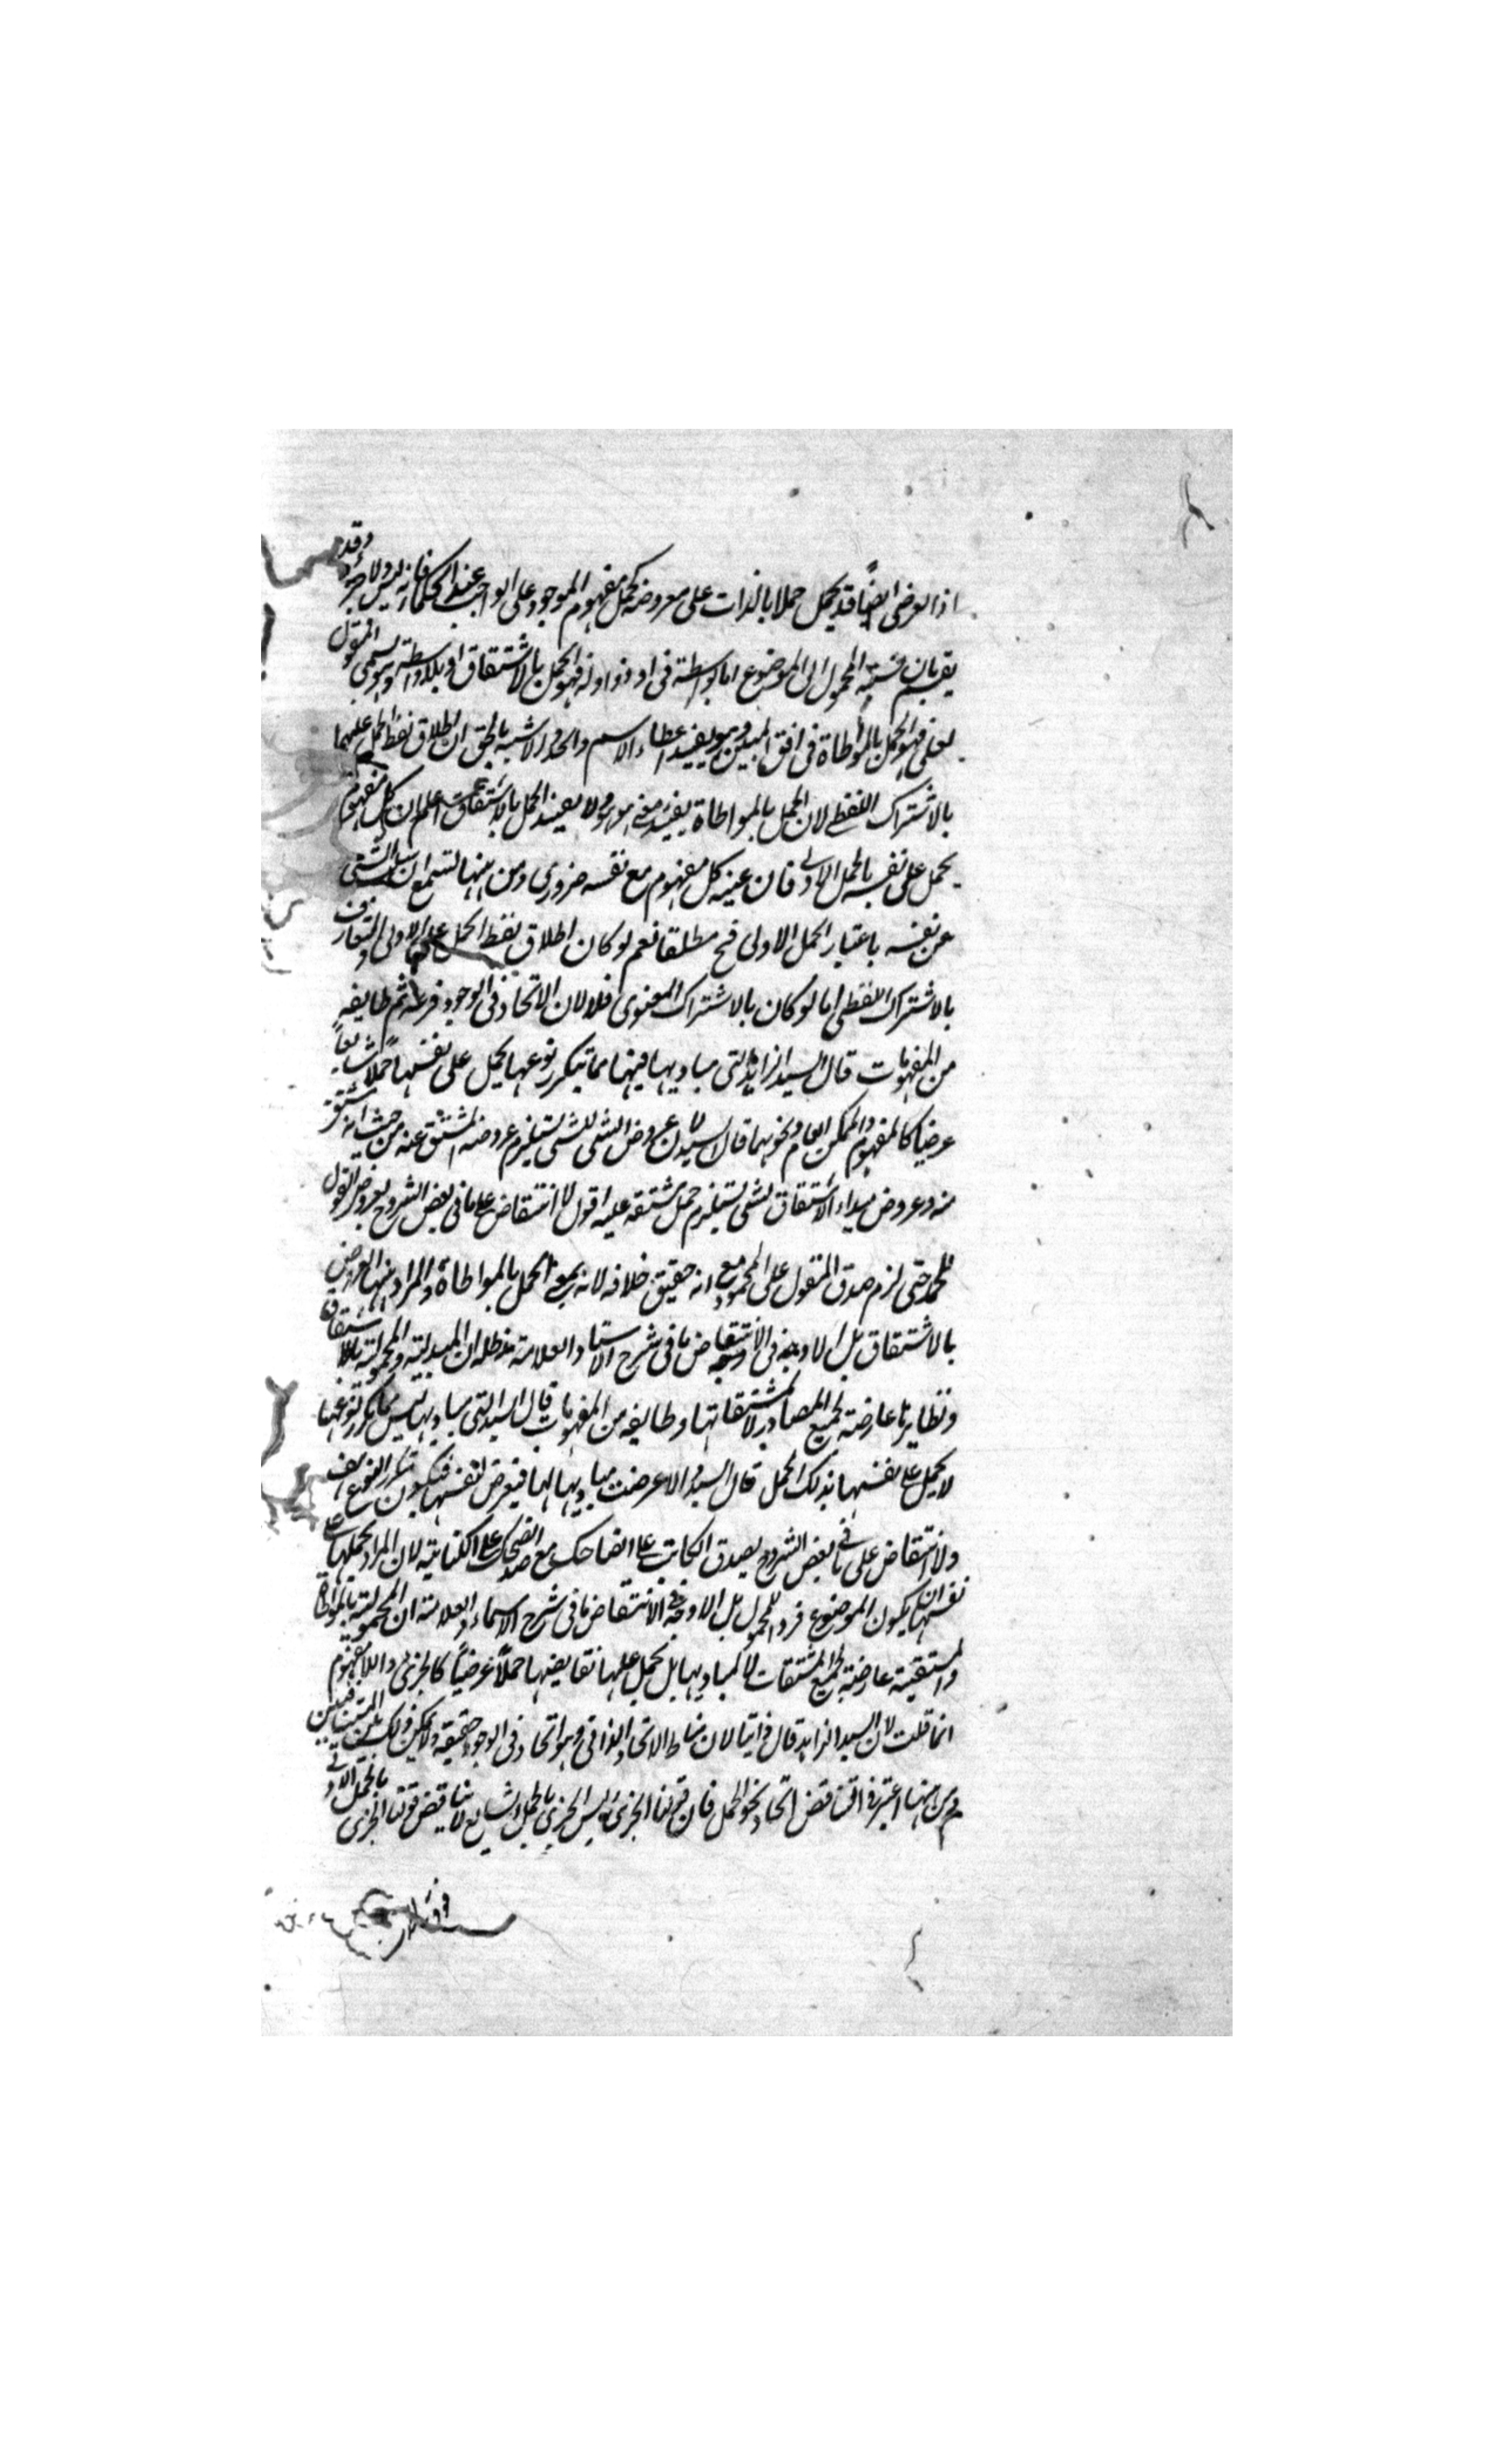 اذ العرضى ايضاً قد يحمل حملا بالذات على معروضه كحمل مفهوم الموجود على الواجب عند الحكماء فانه ليس ولا جزء وقد
يقسم بان نسبة المحمول الى الموضوع اما بواسطة فى او ذو او له فهو الحمل بالاشتقاق او بلا واسطة وهو يسمى المقول
بعلى فهو الحمل بالمواطاة فى افق المبين وهو يفيد اعطاء الاسم والحد الاشبه بالحق ان اطلاق لفظ الحمل عليهما
بالاشتراك اللفظى لان الحمل بالمواطاة يفيد معنى هو هو ولا يفيد الحمل بالاشتقاق اعلم ان كل مفهوم
يحمل على نفسه بالحمل الاولى فان عينية كل مفهوم مع نفسه ضرورى ومن ههنا تسمع ان سلب الشئ
عن نفسه باعتبار الحمل الاولى مح مطلقا نعم لو كان اطلاق لفظ الحمل على الاولى والمتعارف
بالاشتراك اللفظى اما لو كان بالاشتراك المعنوى فلا لان الاتحاد فى الوجود فرعه ثم طايفة
من المفهومات قال السيد الزاهد التى مباديها فيها مما يتكرر نوعها يحمل على نفسها حملا شايعاً
عرضيا كالمفهوم والممكن العام ونحوهما قال السيد لان عروض الشئ للشئ يستلزم عروضه للمشتق عنه من حيث انه مشتق
منه وعروض مبداء الاشتقاق لشئ يستلزم حمل مشتقه عليه اقول لا انتقاض على ما فى بعض الشروح بعروض القول
للحمد حتى لزم صدق المقول على المحمود مع انه حقيق خلافه لانه بمعنى الحمل بالمواطاة والمراد ههنا العروض
بالاشتقاق بل الاوجه فى الانتقاض ما فى شرح الاستاد العلامة مدظله ان المبدئية والمحمولية بالاشتقاق
ونظايرها عارضة لجميع المصادر لا لمشتقاتها وطايفة من المفهومات قال السيد التى مباديها ليس مما يتكرر نوعها
لا يحمل على نفسها بذلك الحمل قال السيد والا عرضت مباديها لها فيعرض لنفسها فيكون متكرر النوع هف
ولا انتقاض على ما فى بعض الشروح بصدق الكاتب على الضاحك مع صدق الضحك على الكتابة لان المراد بحملها على
نفسها ان يكون الموضوع فردا للمحمول بل الاوجه فى الانتقاض ما فى شرح الاستاد العلامة ان المحمولية بالمواطاة
والمشتقية عارضة لجميع المشتقات لا لمباديها بل يحمل عليها نقايضها حملاً عرضياً كالجزئى واللامفهوم
انما قلت لان السيد الزاهد قال ذاتيا لان مناط الاتحاد الذاتى هو اتحاد فى الوجود حقيقة ولا يمكن ذلك بين المتنافيين
ومن ههنا اعتبر فى التناقض اتحاد نحو الحمل فان قولنا الجزئى ليس الجزئى بالحمل الشايع لا يناقض قولنا الجزئى بالحمل الاولى